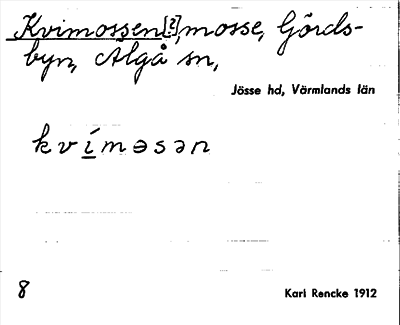 Kvimossen[?], mosse, Gårds-
byn, Algå sn,
Jösse hd, Värmlands län
kví̲mɵsən
8
Karl Rencke 1912